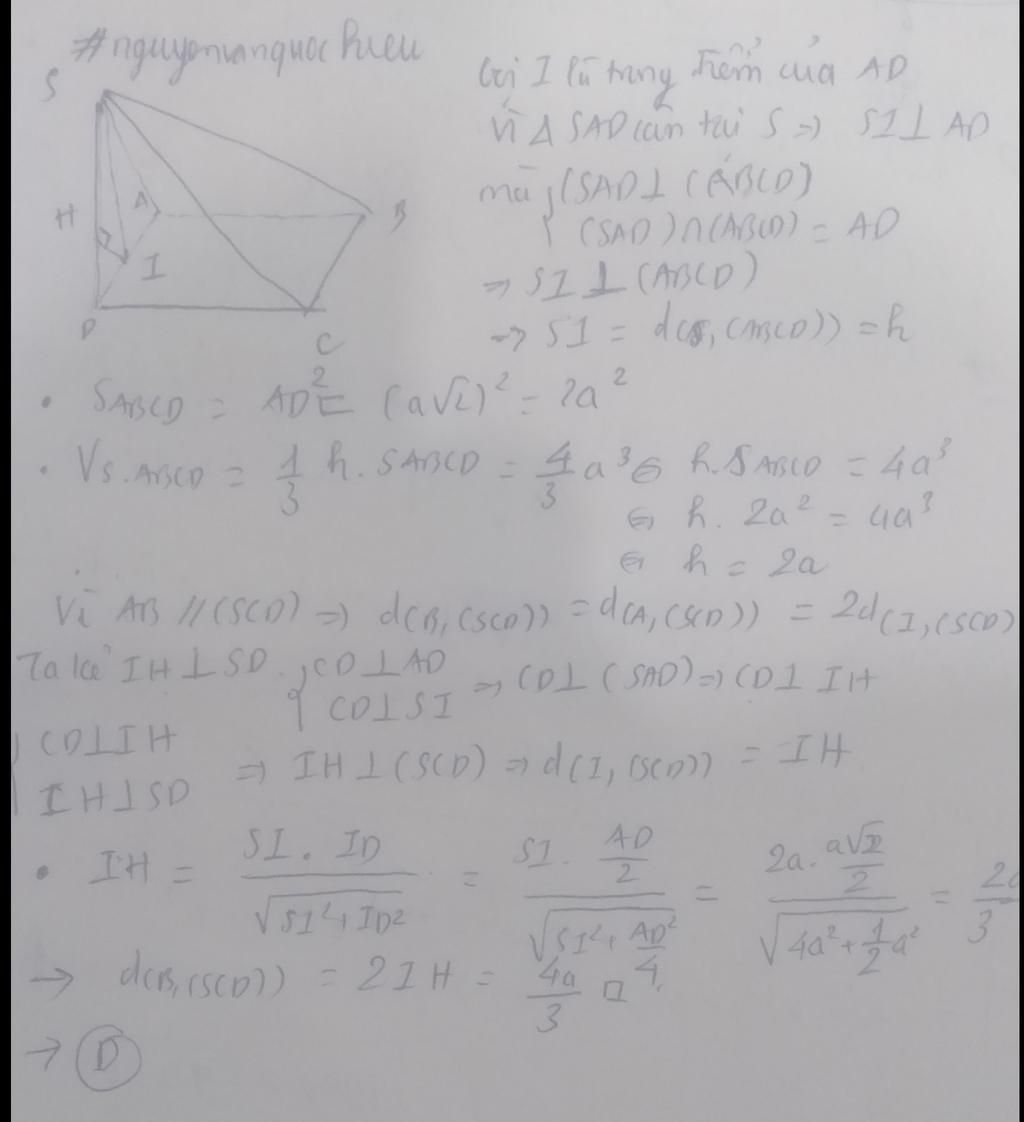 #nguyenvanquochieu
S
H
A
B
I
D
C
Gọi I là trung điểm của AD
Vì Δ SAD cân tại S => SI ⊥ AD
mà { (SAD ⊥ (ABCD)
(SAD) ∩ (ABCD) = AD
=> SI ⊥ (ABCD)
-> SI = d(S, (ABCD)) = h
• SABCD = AD² = (a√2)² = 2a²
• VS.ABCD = 1/3 h. SABCD = 4/3 a³ ⇔ h. SABCD = 4a³
⇔ h. 2a² = 4a³
⇔ h = 2a
Vì AB // (SCD) => d(B, (SCD)) = d(A, (SCD)) = 2d(I, (SCD)
Ta kẻ IH ⊥ SD. { CD ⊥ AD
CD ⊥ SI => CD ⊥ (SAD) => CD ⊥ IH
{ CD ⊥ IH
IH ⊥ SD => IH ⊥ (SCD) => d(I, (SCD)) = IH
• IH = SI . ID / √(SI² + ID²) = SI . AD/2 / √(SI² + AD²/4) = 2a . a√2/2 / √(4a² + 1/2 a²) = 2a/3
-> d(B, (SCD)) = 2IH = 4a/3 □
-> D